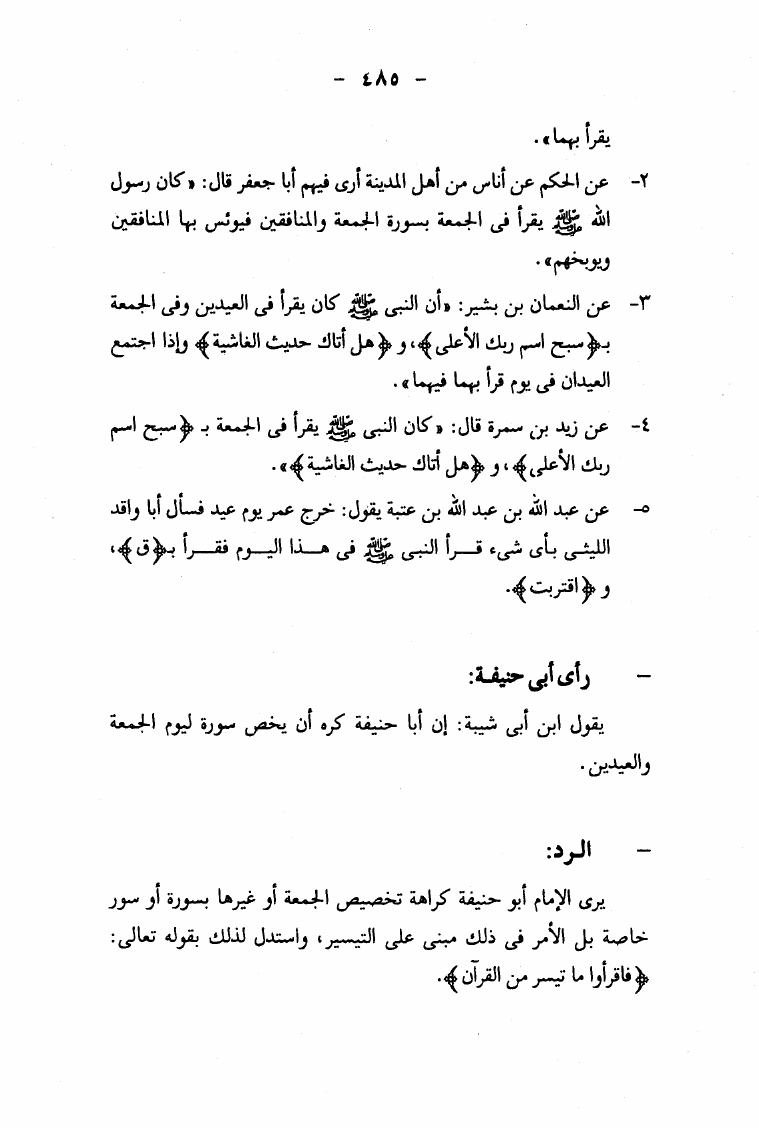 - ٤٨٥ -
يقرأ بهما».
٢- عن الحكم عن أناس من أهل المدينة أرى فيهم أبا جعفر قال: «كان رسول
الله ﷺ يقرأ فى الجمعة بسورة الجمعة والمنافقين فيوئس بها المنافقين
ويوبخهم».
٣- عن النعمان بن بشير: «أن النبى ﷺ كان يقرأ فى العيدين وفى الجمعة
بـ﴿سبح اسم ربك الأعلى﴾، و ﴿هل أتاك حديث الغاشية﴾ وإذا اجتمع
العيدان فى يوم قرأ بهما فيهما».
٤- عن زيد بن سمرة قال: «كان النبى ﷺ يقرأ فى الجمعة بـ ﴿سبح اسم
ربك الأعلى﴾، و ﴿هل أتاك حديث الغاشية﴾».
٥- عن عبد الله بن عبد الله بن عتبة يقول: خرج عمر يوم عيد فسأل أبا واقد
الليثـى بـأى شـىء قـــرأ النبـى ﷺ فى هـــذا اليـــوم فقـــرأ بـ﴿ق﴾،
و ﴿اقتربت﴾.
- رأى أبى حنيفـة:
يقول ابن أبى شيبة: إن أبا حنيفة كره أن يخص سورة ليوم الجمعة
والعيدين.
- الـرد:
يرى الإمام أبو حنيفة كراهة تخصيص الجمعة أو غيرها بسورة أو سور
خاصة بل الأمر فى ذلك مبنى على التيسير، واستدل لذلك بقوله تعالى:
﴿فاقرأوا ما تيسر من القرآن﴾.